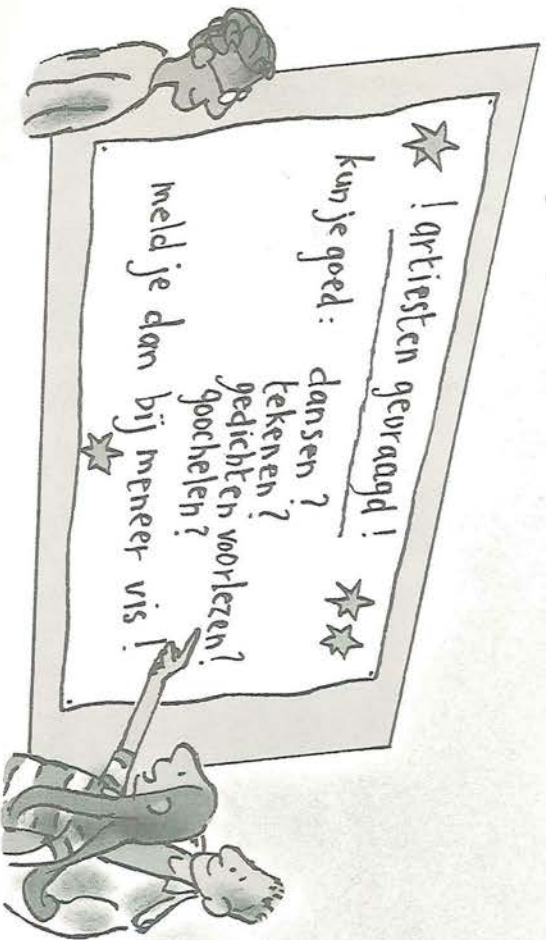 ! artiesten gevraagd!
kun je goed: dansen?
tekenen?
gedichten voorlezen?
goochelen?
meld je dan bij meneer vis!